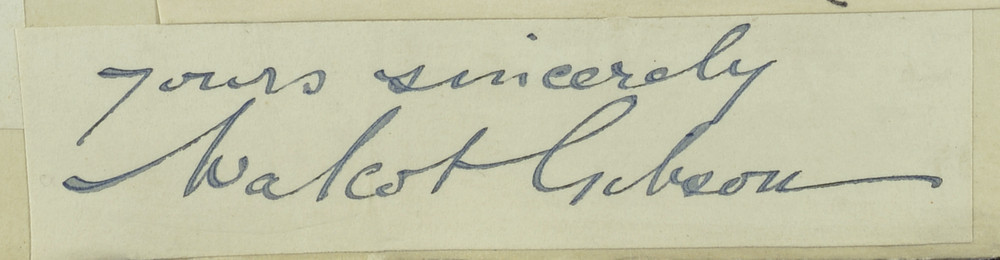 yours sincerely
Walcot Gibson